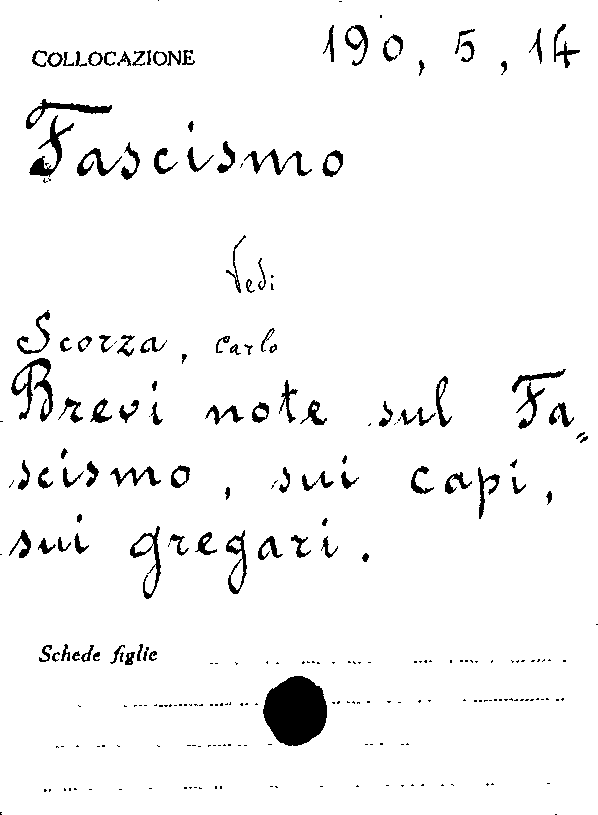 COLLOCAZIONE 190, 5, 14
Fascismo
Vedi
Scorza, Carlo
Brevi note sul Fa=
scismo, sui capi,
sui gregari.
Schede figlie